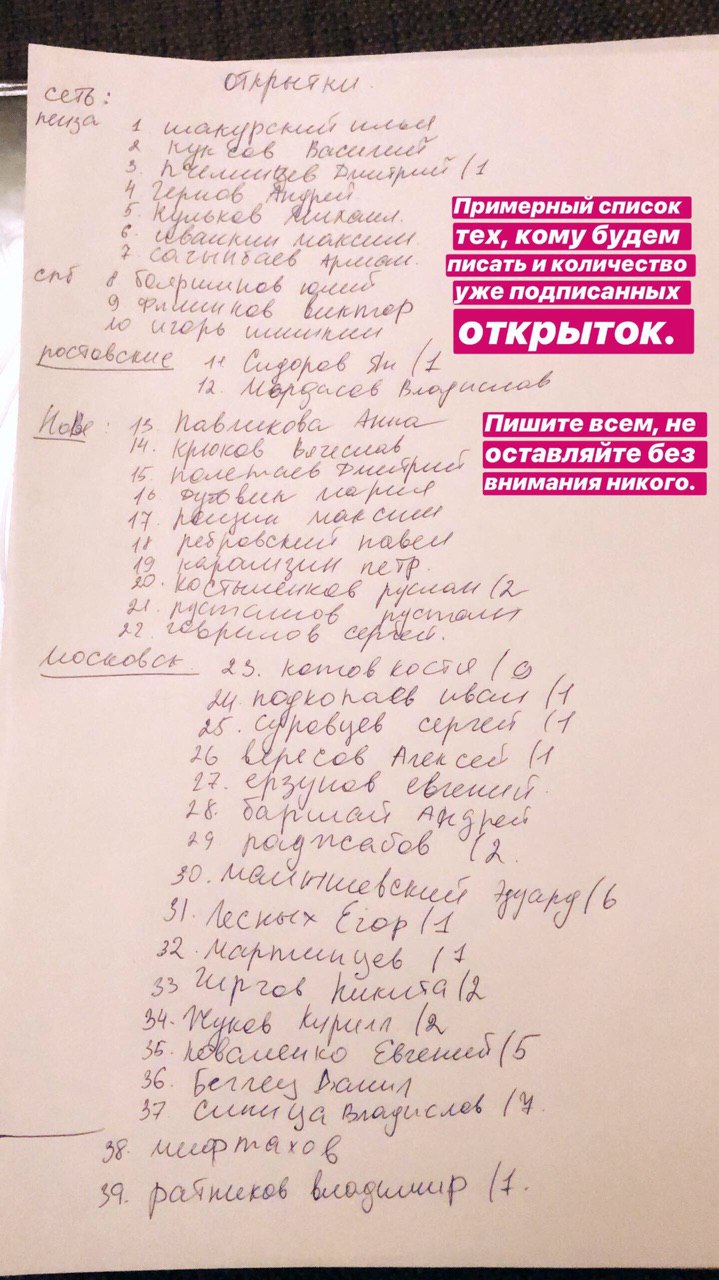 открытки.
сеть:
пенза
1 шакурский илья
2 Куксов Василий
3. Пчелинцев Дмитрий (1
4. Чернов Андрей
5. Кульков Михаил.
6. иванкин максим.
7 сагынбаев Арман.
спб 8 бояршинов юлий
9 Филинков виктор
10 игорь шишкин
ростовские 11 Сидоров Ян (1
12. Мордасов Владислав
Новве: 13. Павликова Анна
14. крюков вячеслав
15. полетаев Дмитрий
16 Дубовик мария
17. рощин максим
18 ребровский павел
19 карамзин петр.
20. костыленков руслан (2
21. рустамов рустам
22. гаврилов сергей.
московск. 23. котов костя (9
24. подкопаев иван (1
25. суровцев сергей (1
26 вересов Алексей (1
27. ерзунов евгений.
28. баршай Андрей
29 раджабов (2.
30. малышевский Эдуард (6
31. Лесных Егор (1
32. мартинцев (1
33 Чиргов Никита (2
34. Жуков Кирилл (2
35. коваленко Евгений (5
36. Беглец Данил
37. синица Владислав (7.
38. мифтахов
39. ратников владимир (1.
Примерный список
тех, кому будем
писать и количество
уже подписанных
открыток.
Пишите всем, не
оставляйте без
внимания никого.